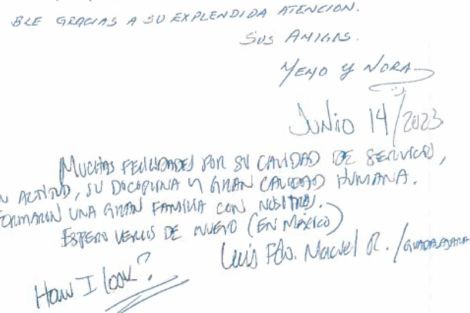 BLE GRACIAS A SU EXPLENDIDA ATENCION.
SUS AMIGOS.
MEMO Y NORA
JUNIO 14/2023
MUCHAS FELICIDADES POR SU CALIDAD DE SERVICIO,
N ACTITUD, SU DISCIPLINA Y GRAN CALIDAD HUMANA.
FORMARON UNA GRAN FAMILIA CON NOSOTROS.
ESPERO VERLOS DE NUEVO (EN MÉXICO)
Luis Fdo. R. / GUADALAJARA
How I look?